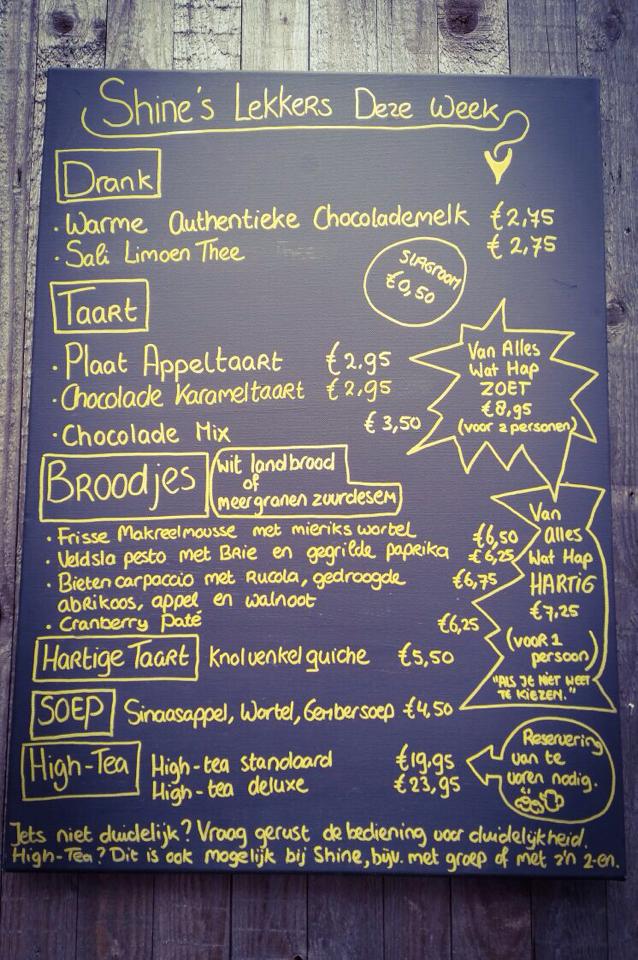 Shine's Lekkers Deze Week
Drank
· Warme Authentieke Chocolademelk €2,75
· Sali Limoen Thee €2,75
SLAGROOM
€0,50
Taart
· Plaat Appeltaart €2.95
· Chocolade Karameltaart €2,95
· Chocolade Mix €3,50
Van Alles
Wat Hap
ZOET
€8,95
(voor 2 personen)
Broodjes
Wit landbrood
of
meergranen zuurdesem
· Frisse Makreelmousse met mieriks wortel €6,50
· Veldsla pesto met Brie en gegrilde paprika €6,25
· Bieten carpaccio met Rucola, gedroogde €6,75
abrikoos, appel en walnoot
· Cranberry Paté €6,25
Van
Alles
Wat Hap
HARTIG
€7,25
(voor 1
persoon)
"ALS JE NIET WEET
TE KIEZEN."
Hartige Taart Knolvenkel quiche €5,50
SOEP Sinaasappel, Wortel, Gembersoep €4,50
High-Tea High-tea standaard €19,95
High-tea deluxe €23,95
Reservering
van te
voren nodig.
Iets niet duidelijk? Vraag gerust de bediening voor duidelijkheid.
High-Tea? Dit is ook mogelijk bij Shine, bijv. met groep of met z'n 2-en.